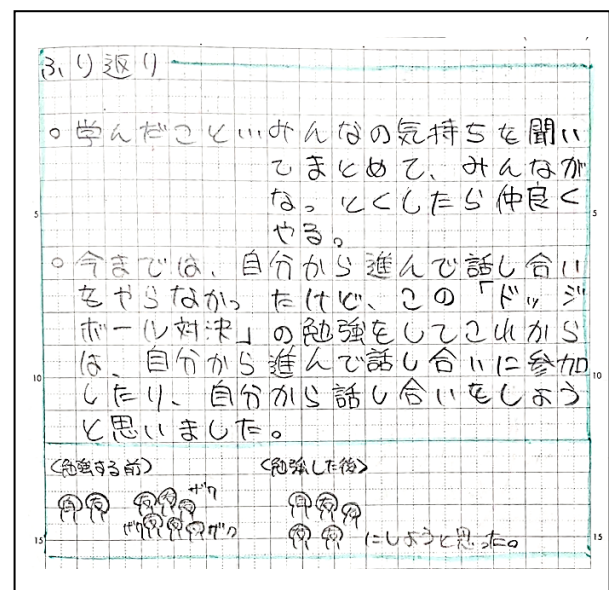 ふり返り
○学んだこと…みんなの気持ちを聞い
てまとめて、みんなが
なっとくしたら仲良く
やる。
○今までは、自分から進んで話し合い
をやらなかったけど、この「ドッジ
ボール対決」の勉強をしてこれから
は、自分から進んで話し合いに参加
したり、自分から話し合いをしよう
と思いました。
〈勉強する前〉 〈勉強した後〉
自 友 ザワ
ザワ ザワ
自 友
にしようと思った。
5
10
15
5
10
15